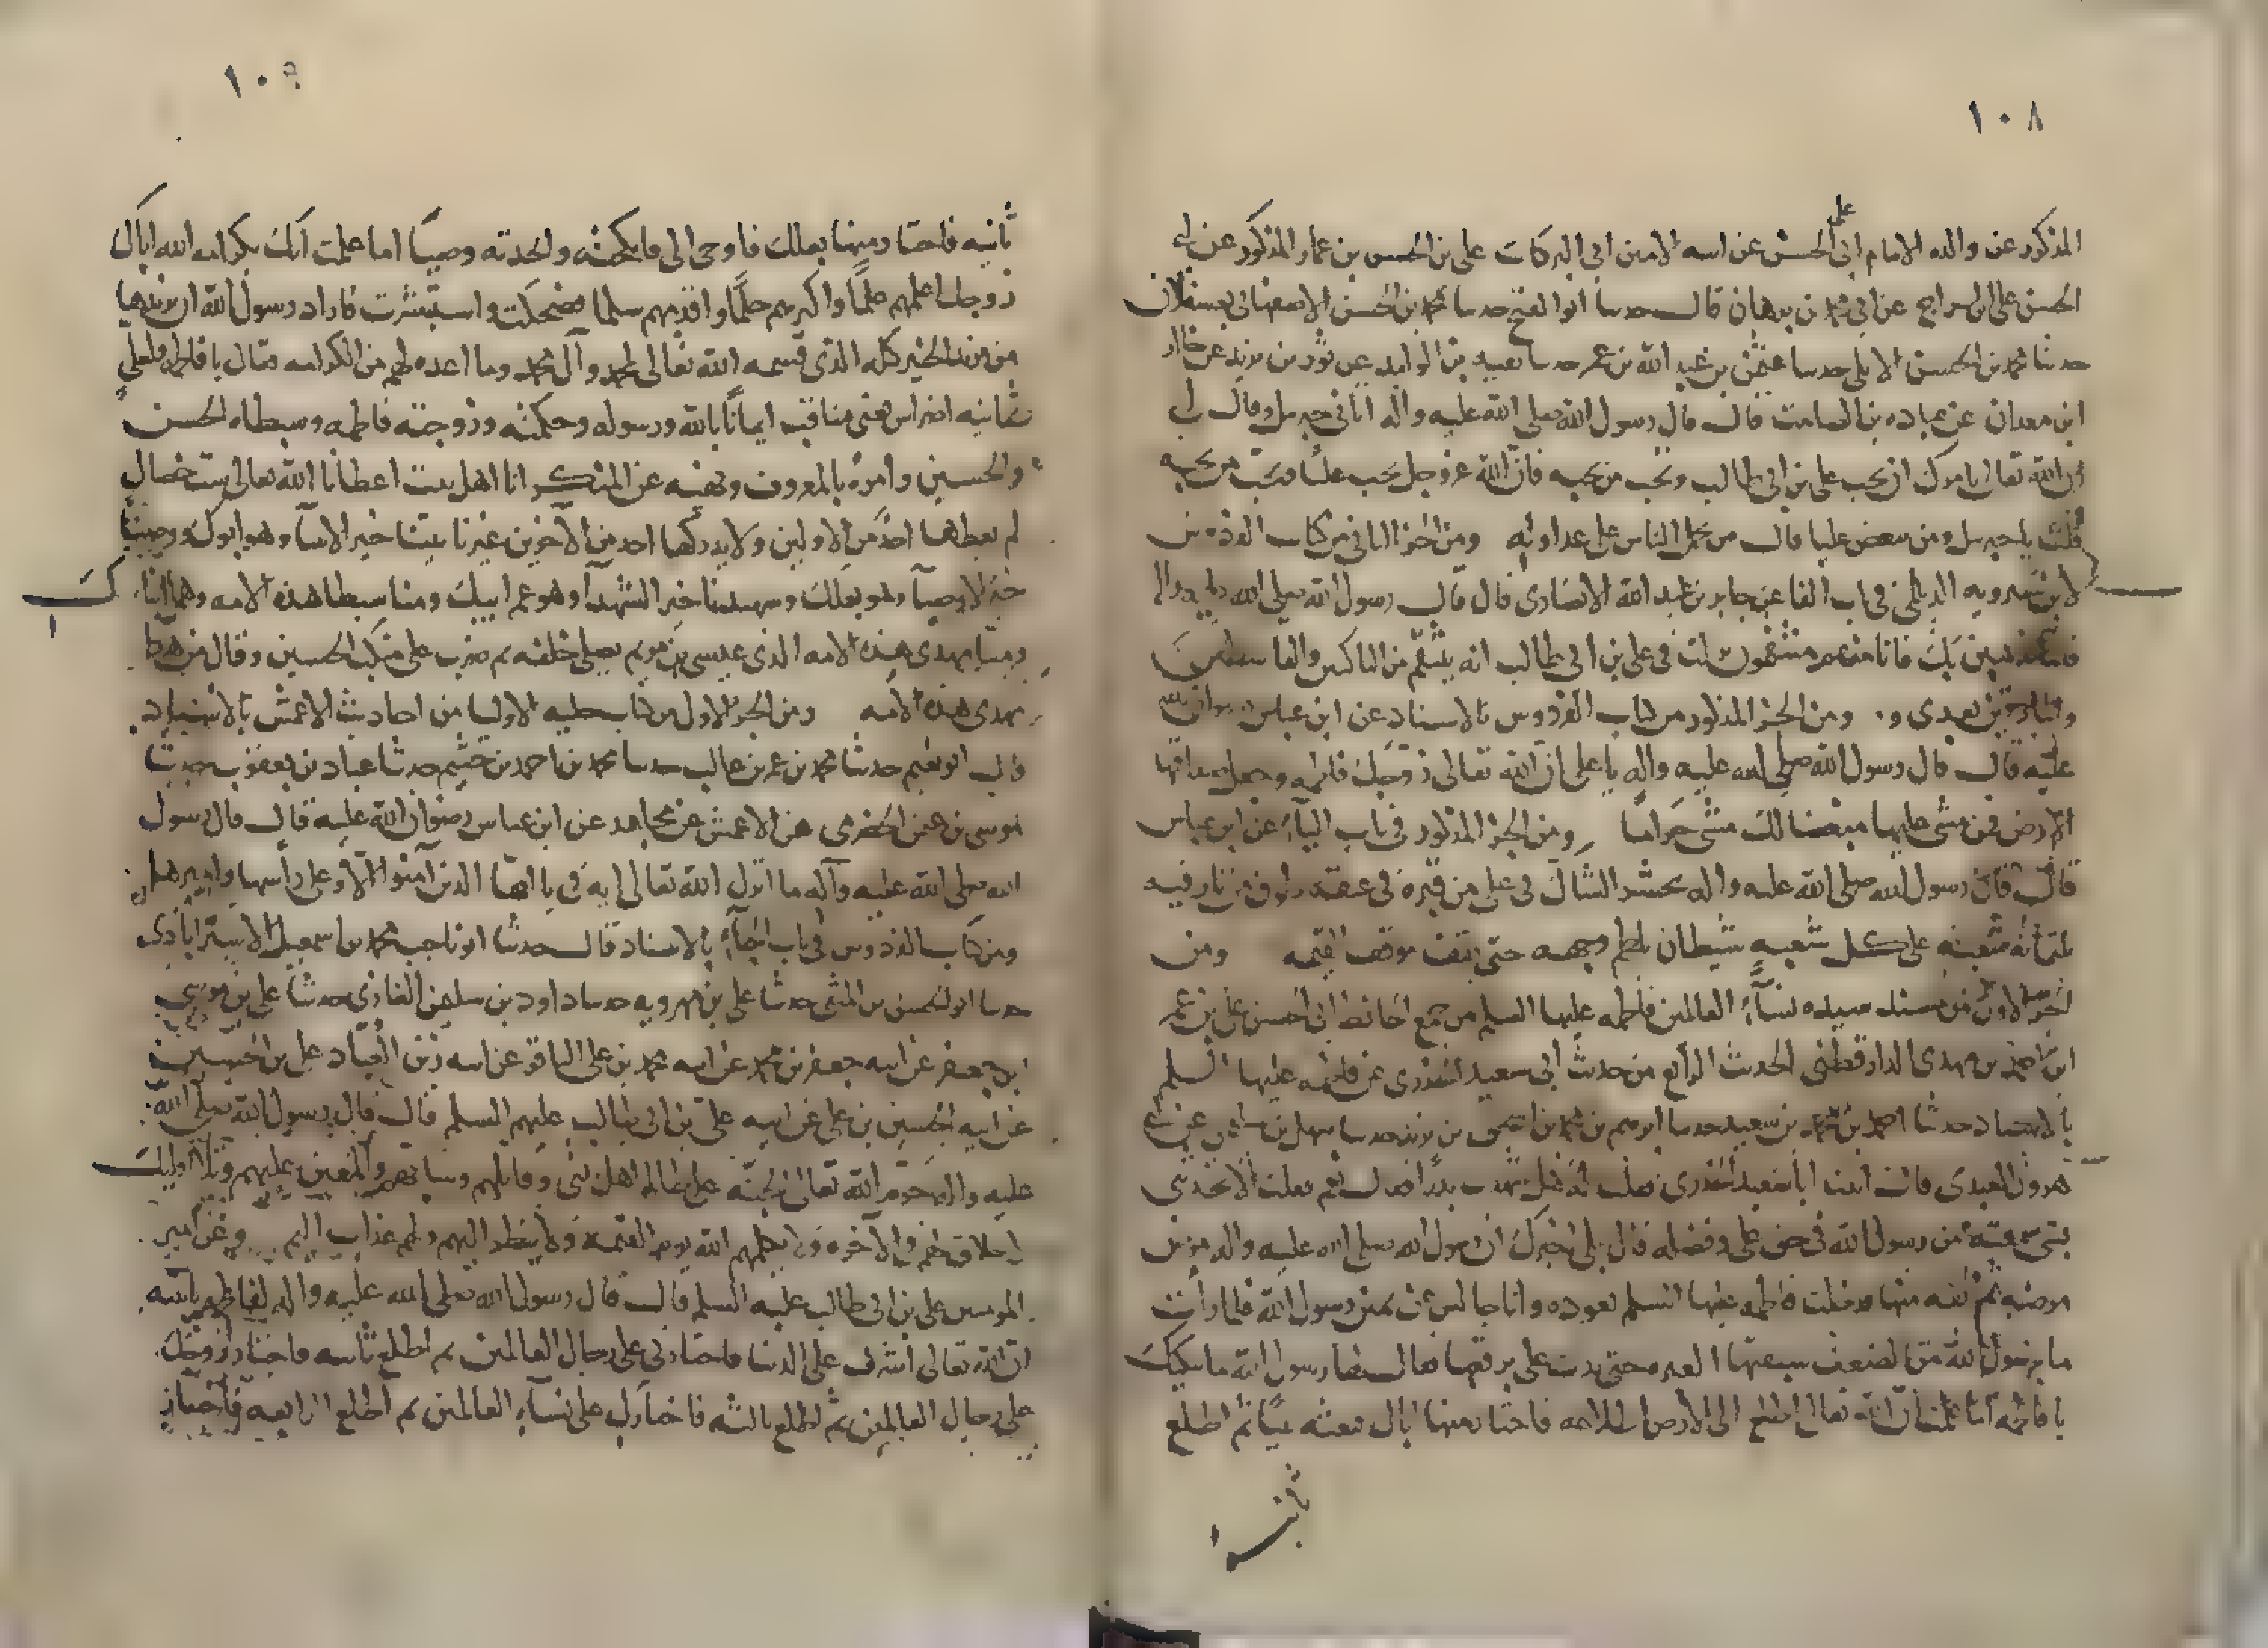 ١٠٨
المذكور عن والده الامام ابى على الحسن عن اسه الامين ابى البركات على بن الحسن بن عمار المذكور عن ابى
الحسن على السراج عن ابى محمد بن برهان قال حدسا ابو الفتح حدسا محمد بن الحسن الاصفهانى بعسقلان
حدثنا محمد بن الحسن الابلى حدسا عثمن بن عبد الله بن عمر حدسا بقيه بن الوليد عن ثور بن يزيد عن خالد
ابن معدان عن عباده بن الصامت قال قال رسول الله صلى الله عليه واله اتانى جبرسل وقال لى
ان الله تعالى يامرك ان تحب على بن ابى طالب وتحب من يحبه فان الله عز وجل يحب عليا ويحب من يحبه
قلت يا جبرسل ومن سغض عليا قال من يحمل الناس على عداوته ومن الجز الثانى من كتاب الفردوس
لابن شيرويه الديلمى فى باب الفا عن جابر بن عبد الله الانصارى قال قال رسول الله صلى الله عليه واله
فاما نذهبن بك فانا منهم منتقمون نزلت فى على بن ابى طالب انه ينتقم من الناكثين والقاسطين
والمارقين بعدى ومن الجز المذكور من كتاب الفردوس بالاسناد عن ابن عباس رضوان الله
عليه قال قال رسول الله صلى الله عليه واله يا على ان الله تعالى زوجك فاطمه وجعل صداقها
الارض فمن مشى عليها مبغضا لك مشى حراما ومن الجز المذكور فى باب الياء عن ابن عباس
قال قال رسول الله صلى الله عليه واله يحشر الشاك فى على من قبره فى عنقه طوق من نار فيه
ثلثمائه شعبه على كل شعبه شيطان يلطم وجهه حتى يقف موقف القيمه ومن
الجز الاول من مسند سيده نساء العالمين فاطمه عليها السلم من جمع الحافظ ابى الحسن على بن عمر
ابن احمد بن مهدى الدارقطنى الحديث الرابع من حديث ابى سعيد الخدرى عن فاطمه عليها السلم
بالاسناد حدثنا احمد بن محمد بن سعيد حدسا ابرهيم بن محمد بن اسحق بن يزيد حدسا سهل بن سليمن عن ابى
هرون العبدى قال اتيت ابا سعيد الخدرى فقلت له هل شهدت بدرا فقال نعم فقلت الا تحدثنى
بشى سمعته من رسول الله فى حق على وفضله قال بلى اخبرك ان رسول الله صلى الله عليه واله مرض
مرضه ثم نقه منها فدخلت فاطمه عليها السلم تعوده وانا جالس عن يمين رسول الله فلما رات
ما برسول الله من الضعف سبقتها العبره حتى بدت على
يا فاطمه اما علمت ان الله تعالى اطلع الى الارض اطلاعه فاختار منها اباك فبعثه نبيا ثم اطلع
ثانيه
١٠٩
ثانيه فاختار منها بعلك فاوحى الى فانكحته واتخذته وصيا اما علمت انك بكرامه الله اياك
زوجك اعلمهم علما واكرمهم حلما واقدمهم سلما فضحكت واستبشرت فاراد رسول الله ان يزيدها
من مزيد الخير كله الذى قسمه الله تعالى لمحمد وآل محمد وما اعده لهم من الكرامه فقال يا فاطمه ولعلى
ثمانيه اضراس يعنى مناقب ايمانا بالله ورسوله وحكمته وزوجته فاطمه وسبطاه الحسن
والحسين وامره بالمعروف ونهيه عن المنكر انا اهل بيت اعطانا الله تعالى ست خصال
لم يعطها احد من الاولين ولا يدركها احد من الآخرين غيرنا نبينا خير الانبيا وهو ابوك ووصينا
خير الاوصيا وهو بعلك وشهيدنا خير الشهدا وهو عم ابيك ومنا سبطا هذه الامه وهما ابناك
ومنا مهدى هذه الامه الذى عيسى بن مريم يصلى خلفه ثم ضرب على منكب الحسين وقال من هذا
مهدى هذه الامه ومن الجز الاول من كتاب حليه الاوليا من احاديث الاعمش بالاسناد
قال ابو نعيم حدثنا محمد بن عمر بن غالب حدسا محمد بن احمد بن خيثم حدثنا عباد بن يعقوب حدثنا
موسى بن عثمن الحضرمى عن الاعمش عن مجاهد عن ابن عباس رضوان الله عليه قال قال رسول
الله صلى الله عليه وآله ما انزل الله تعالى ايه فى يا ايها الذين آمنوا الا وعلى راسها واميرها
ومن كتاب الفردوس فى باب الحاء بالاسناد قال حدثنا ابو ناجيه محمد بن اسمعيل الاستراباذى
حدسا ابو الحسن بن المثنى حدثنا على بن مهرويه حدسا داود بن سليمن الغازى حدثنا على بن موسى
ابن جعفر عن ابيه جعفر بن محمد عن ابيه محمد بن على الباقر عن ابيه زين العباد على بن الحسين
عن ابيه الحسين بن على عن ابيه على بن ابى طالب عليهم السلم قال قال رسول الله صلى الله
عليه واله حرم الله تعالى الجنه على ظالم اهل بيتى وقاتلهم وسابهم والمعين عليهم وتلا اوليك
لا خلاق لهم فى الآخره ولا يكلمهم الله يوم القيمه ولا ينظر اليهم ولهم عذاب اليم وعن امير
المومنين على بن ابى طالب عليه السلم قال قال رسول الله صلى الله عليه واله لفاطمه يا بنيه
ان الله تعالى اشرف على الدنيا فاختارنى على رجال العالمين ثم اطلع ثانيه فاختار زوجك
على رجال العالمين ثم اطلع ثالثه فاختارك على نساء العالمين ثم اطلع الرابعه فاختار